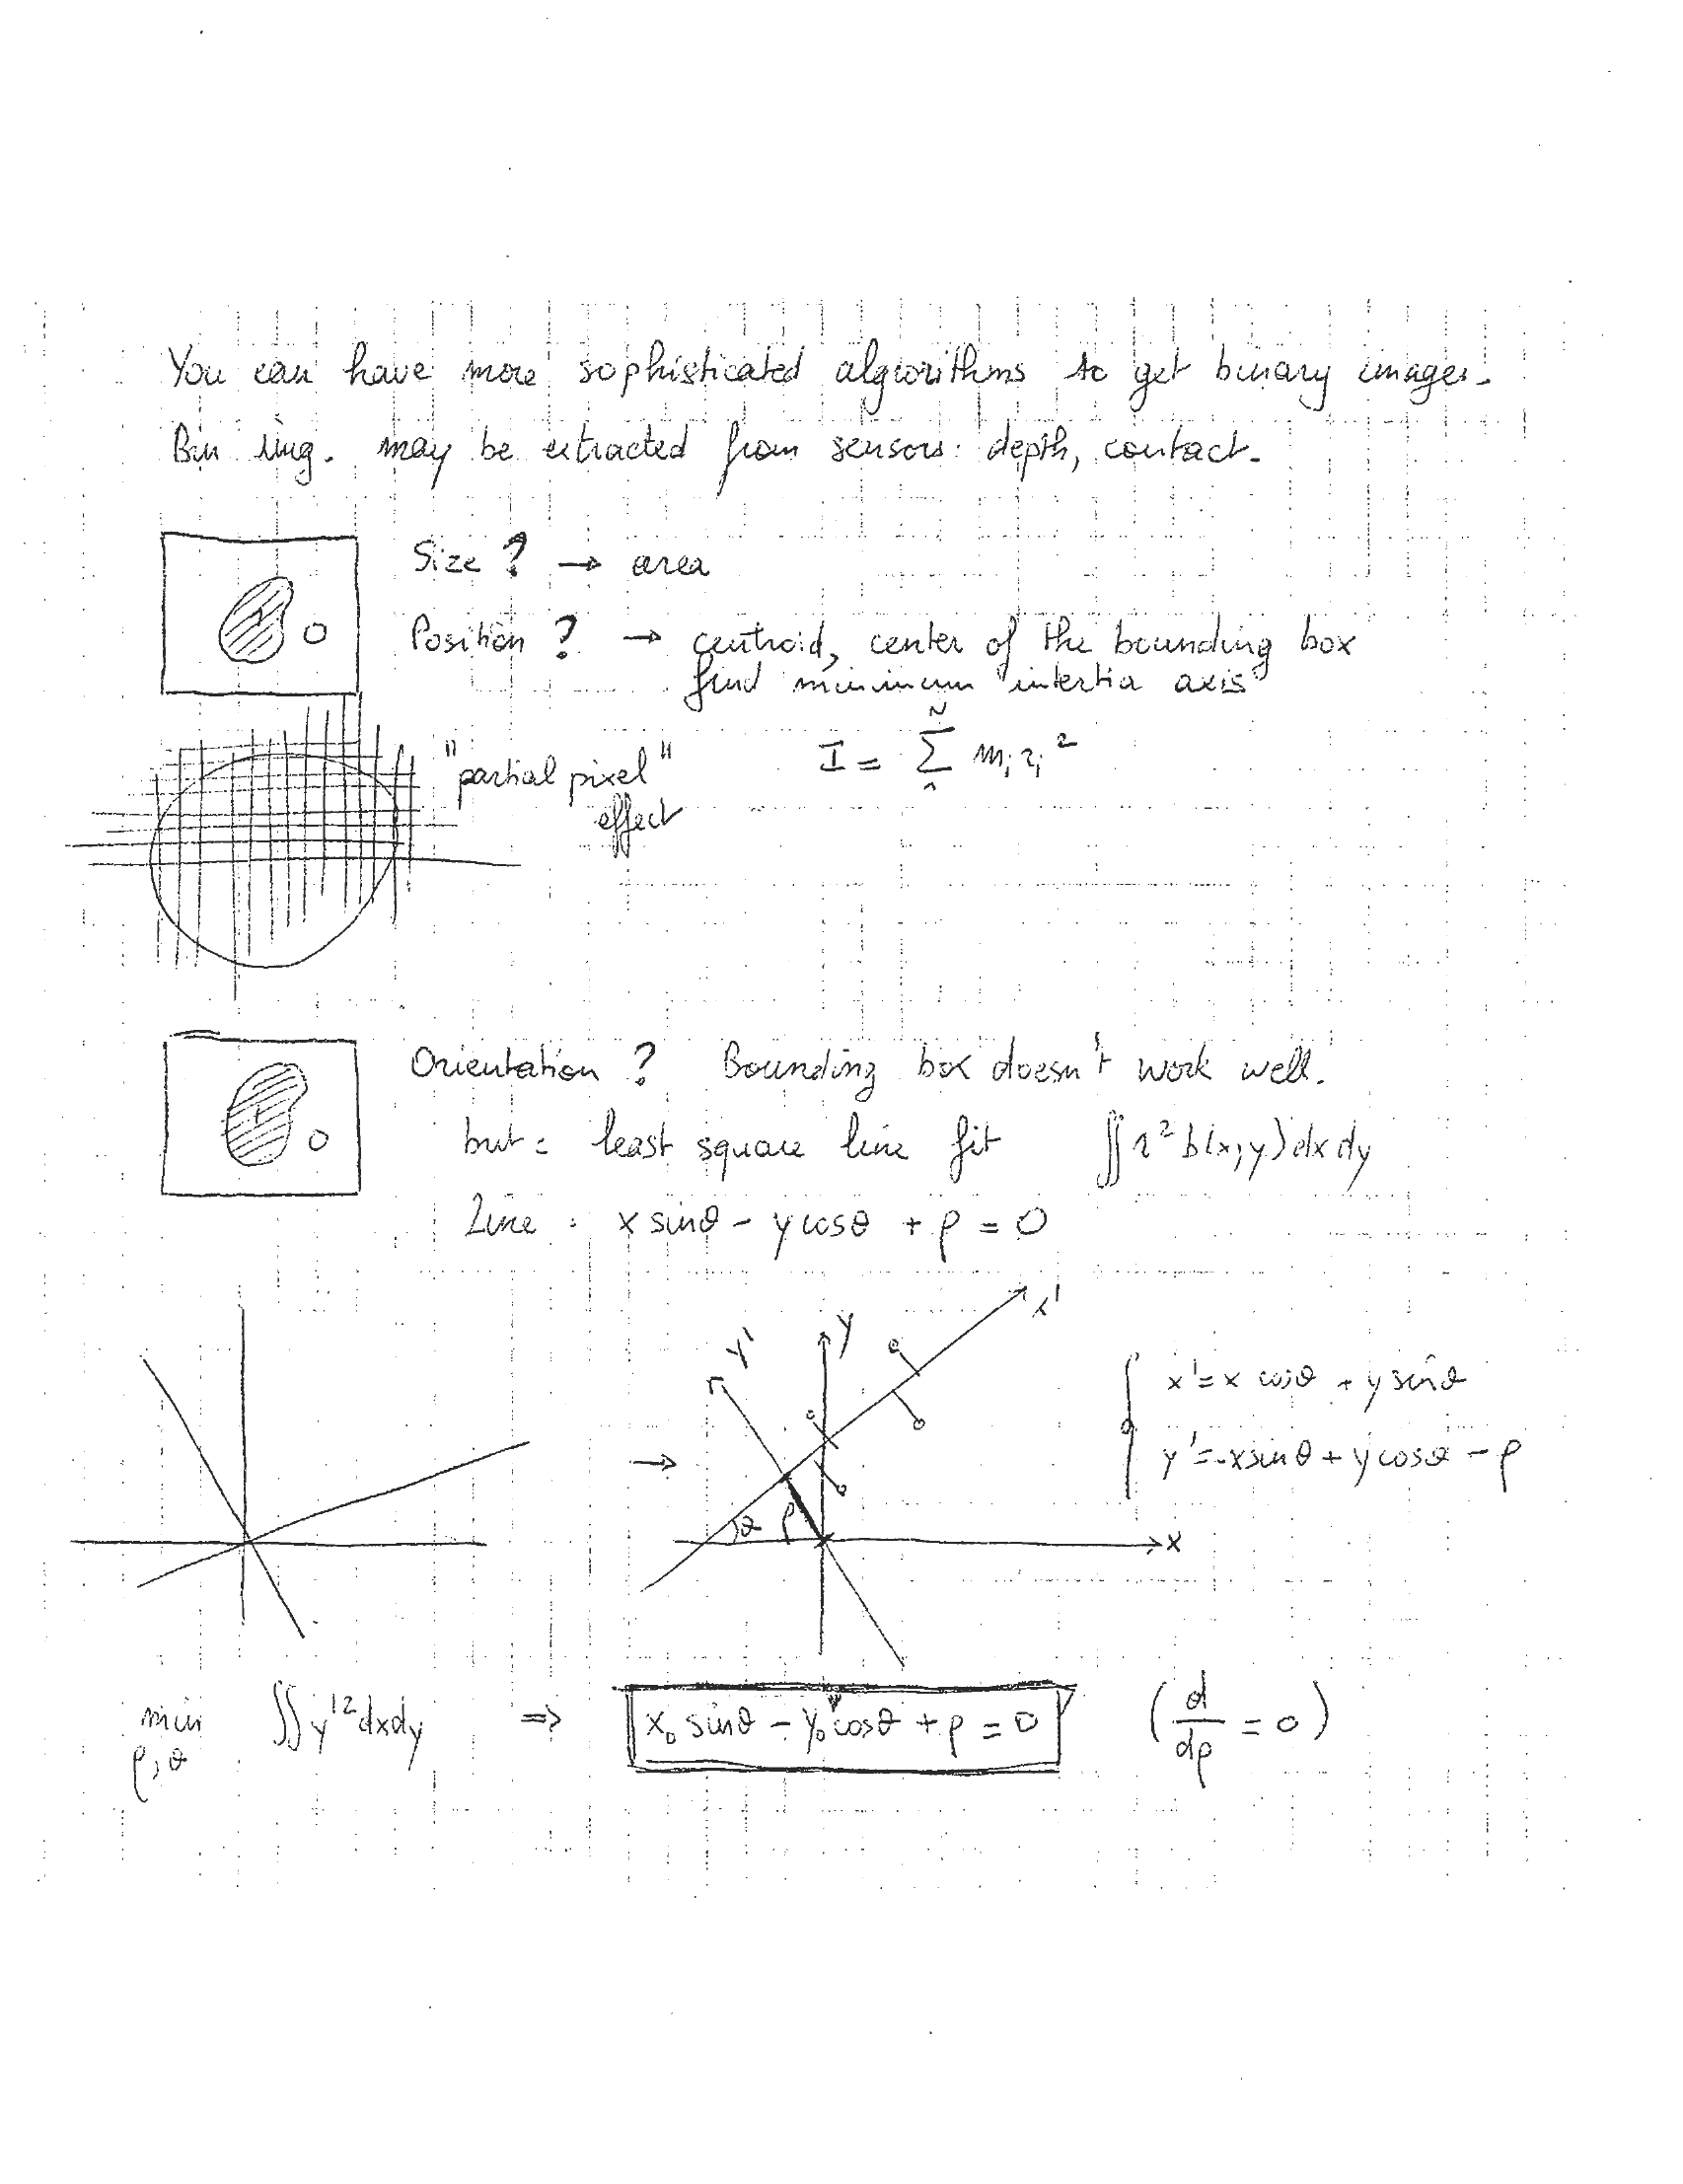 You can have more sophisticated algorithms to get binary images.
Bin img. may be extracted from sensors: depth, contact.
Size ? → area
Position ? → centroid, center of the bounding box
find minimum intertia axis
"partial pixel"
effect
I = Σ mᵢ rᵢ²
N
Orientation ? Bounding box doesn't work well.
but: least square line fit ∬ r² b(x,y) dx dy
Line : x sinθ - y cosθ + ρ = 0
x'
y'
y
→
θ ρ
x
x' = x cosθ + y sinθ
y' = -x sinθ + y cosθ - ρ
min ∬ y'² dx dy ⇒ x₀ sinθ - y₀ cosθ + ρ = 0 (d/dρ = 0)
ρ, θ